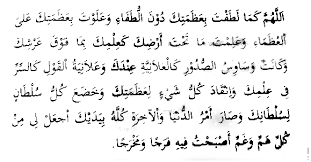 اَللّٰهُمَّ كَمَا لَطَفْتَ بِعَظَمَتِكَ دُوْنَ اللُّطَفَاءِ وَعَلَوْتَ بِعَظَمَتِكَ عَلَى
الْعُظَمَاءِ وَعَلِمْتَ مَا تَحْتَ اَرْضِكَ كَعِلْمِكَ بِمَا فَوْقَ عَرْشِكَ
وَكَانَتْ وَسَاوِسُ الصُّدُوْرِ كَالْعَلَانِيَّةِ عِنْدَكَ وَعَلَانِيَةُ الْقَوْلِ كَالسِّرِّ
فِى عِلْمِكَ وَانْقَادَ كُلُّ شَىْءٍ لِعَظَمَتِكَ وَخَضَعَ كُلُّ سُلْطَانٍ
لِسُلْطَانِكَ وَصَارَ اَمْرُ الدُّنْيَا وَالْاٰخِرَةِ كُلُّهُ بِيَدِيْكَ اِجْعَلْ لِى مِنْ
كُلِّ هَمٍّ وَغَمٍّ اَصْبَحْتُ فِيْهِ فَرَجًا وَمَخْرَجًا.